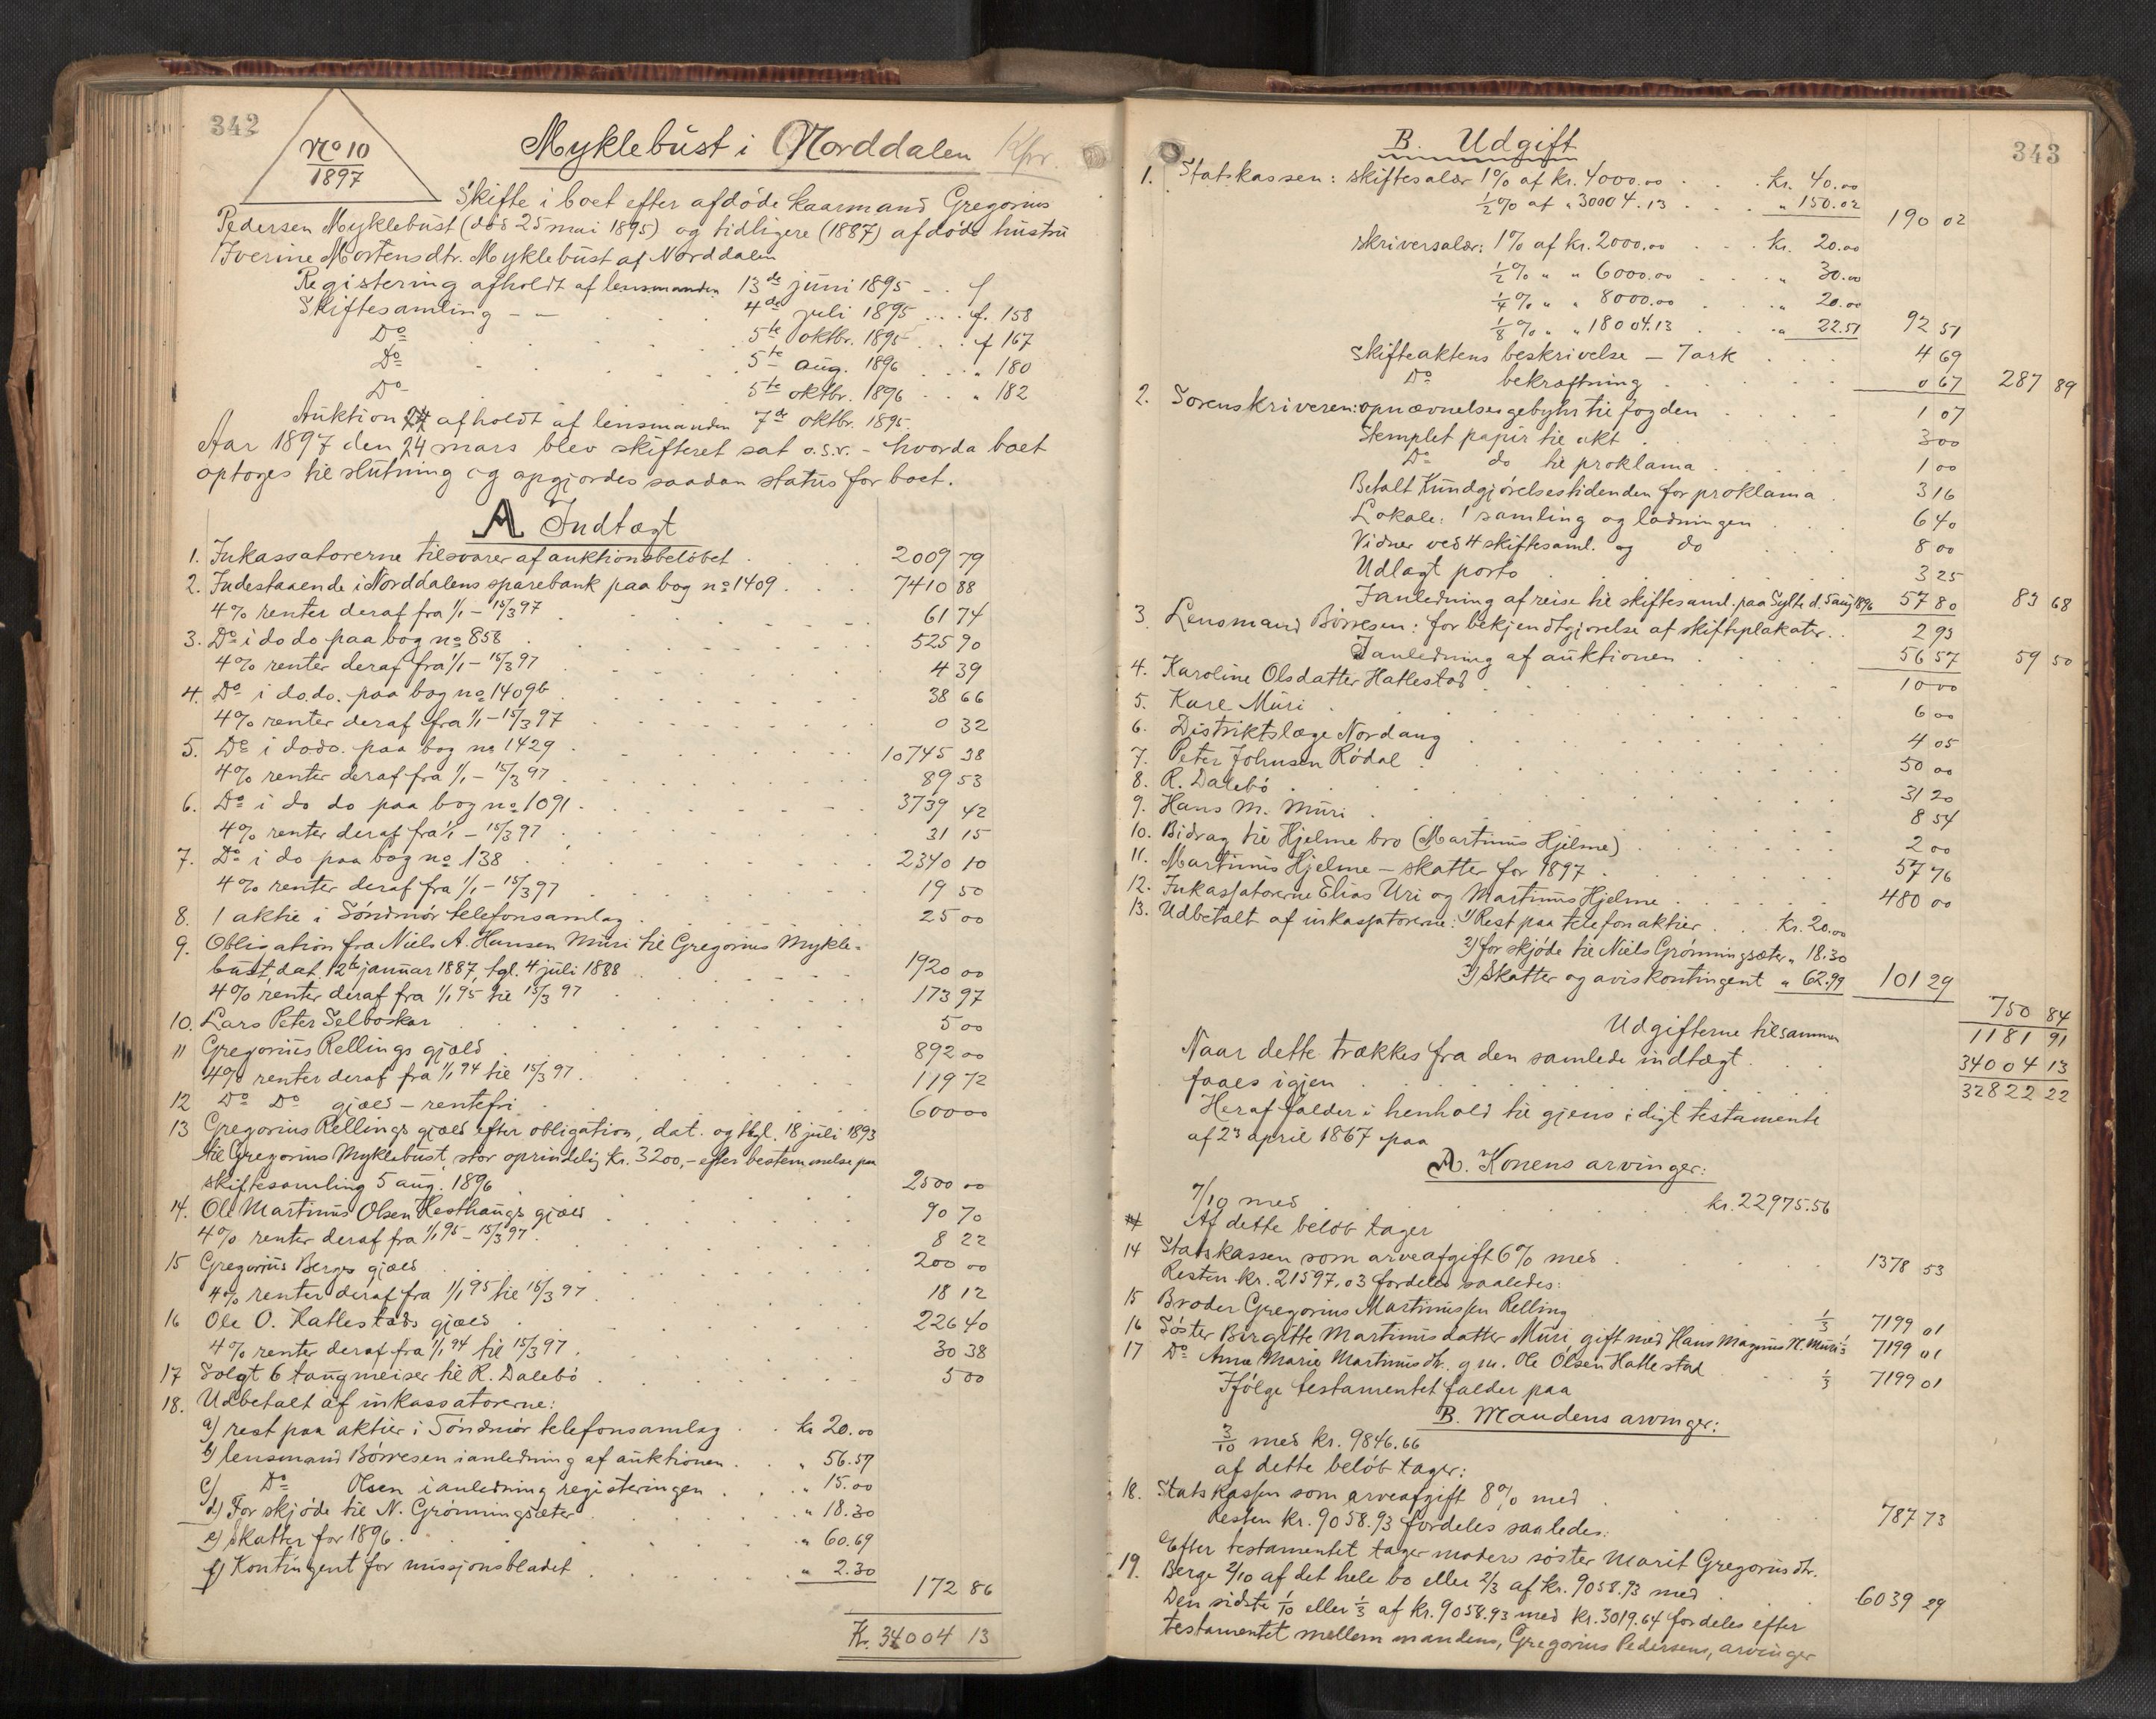 342
No 10
1897
Myklebust i Norddalen Kpr.
Skifte i boet efter afdöde kaarmand Gregorius
Pedersen Myklebust (död 25 mai 1895) og tidligere (1887) afdöde hustru
Iverine Mortensdtr. Myklebust af Norddalen
Registering afholdt af lensmanden 13de juni 1895 - - f
Skiftesamling - - 4de juli 1895 ... f. 158
Do 5te oktbr. 1895 ... f 167
Do 5te aug. 1896 ... " 180
Do 5te oktbr. 1896 ... " 182
Auktion afholdt af lensmanden 7de oktbr. 1895.
Aar 1897 den 24 mars blev skifteret sat o.s.v. - hvorda boet
optoges til slutning og opgjordes saadan status for boet.
A Indtægt
1. Inkassatorerne tilsvarer af auktionsbelöbet 2009 79
2. Indestaaende i Norddalens sparebank paa bog no 1409 7410 88
4% renter deraf fra 1/1 - 15/3 97 61 74
3. Do i do do paa bog no 858 525 90
4% renter deraf fra 1/1 - 15/3 97 4 39
4. Do i do. do. paa bog no 1409b 38 66
4% renter deraf fra 1/1 - 15/3 97 0 32
5. Do i do do. paa bog no 1429 10745 38
4% renter deraf fra 1/1 - 15/3 97 89 53
6. Do i do do paa bog no 1091 3739 42
4% renter deraf fra 1/1 - 15/3 97 31 15
7. Do i do paa bog no 138 2340 10
4% renter deraf fra 1/1 - 15/3 97 19 50
8. 1 aktie i Söndmör telefonsamlag 25 00
9. Obligation fra Niels A. Hansen Muri til Gregorius Mykle=
bust, dat. 12te januar 1887, tgl. 4 juli 1888 1920 00
4% renter deraf fra 1/1 95 til 15/3 97 173 97
10. Lars Peter Selboskar 5 00
11 Gregorius Rellings gjæld 892 00
4% renter deraf fra 1/1 94 til 15/3 97 119 72
12 Do Do gjæld - rentefri 600 00
13 Gregorius Rellings gjæld efter obligation, dat. og tgl. 18 juli 1893
til Gregorius Myklebust, stor oprindelig Kr. 3200,- efter bestemmelse paa
skiftesamling 5 aug. 1896 2500 00
14. Ole Martinus Olsen Hesthaugs gjæld 90 70
4% renter deraf fra 1/1 95 - 15/3 97 8 22
15 Gregorius Berges gjæld 200 00
4% renter deraf fra 1/1 95 til 15/3 97 18 12
16 Ole O. Hatlestads gjæld 226 40
4% renter deraf fra 1/1 94 til 15/3 97 30 38
17 Solgt 6 taugmeiser til R. Dalebö 5 00
18. Udbetalt af inkassatorerne:
a) rest paa aktier i Söndmör telefonsamlag kr 20.00
b) lensmand Börresen i anledning af auktionen " 56.57
c) Do Olsen i anledning registeringen " 15.00
d) For skjöde til N. Grönningsæter " 18.30
e) Skatter for 1896 " 60.69
f) Kontingent for missjonsbladet " 2.30
172 86
Kr. 34004 13
343
B. Udgift
1. Statskassen: skiftesalær 1% af kr. 4000.00 Kr. 40.00
1/2% af " 30004.13 " 150.02
190 02
skriversalær: 1% af kr. 2000.00 Kr. 20.00
1/2% " " 6000.00 " 30.00
1/4% " " 8000.00 " 20.00
1/8% " " 18004.13 " 22.51 92 51
Skifteaktens beskrivelse - 7 ark 4 69
Do bekræftning 0 67 287 89
2. Sorenskriveren: opnævnelsesgebyhr til fogden 1 07
Stemplet papir til akt 3 00
Do do til proklama 1 00
Betalt Kundgjörelsestidenden for proklama 3 16
Lokale: 1 samling og ladningen 6 40
Vidner ved 4 skiftesaml. og do 8 00
Udlagt porto 3 25
I anledning af reise til skiftesaml. paa Sylte d. 5 aug 1896 57 80 83 68
3. Lensmand Börresen: for bekjendtgjörelse af skifteplakater 2 93
I anledning af auktionen 56 57 59 50
4. Karoline Olsdatter Hatlestad 10 00
5. Kare Muri 6 00
6. Distriktslæge Nordang 4 05
7. Peter Johnsen Rödal 50 00
8. R. Dalebö 31 20
9. Hans M. Muri 8 54
10. Bidrag til Hjelme bro (Martinus Hjelme) 2 00
11. Martinus Hjelme - skatter for 1897 57 76
12. Inkassatorerne Elias Uri og Martinus Hjelme 480 00
13. Udbetalt af inkassatorerne: 1) Rest paa telefonaktier Kr. 20.00
2) for skjöde til Niels Grönningsæter " 18.30
3) Skatter og aviskontingent " 62.99 101 29
750 84
Udgifterne tilsammen 1181 91
Naar dette trækkes fra den samlede indtægt 34004 13
faaes igjen 32822 22
Heraf falder i henhold til gjensidigt testamente
af 23 april 1867 paa
A. Konens arvinger:
7/10 med kr. 22975.56
Af dette belöb tager
14 Statskassen som arveafgift 6% med 1378 53
Resten kr. 21597.03 fordeles saaledes:
15 Broder Gregorius Martinussen Relling 1/3 7199 01
16 Söster Birgitte Martinusdatter Muri, gift med Hans Magnus N. Muri 1/3 7199 01
17 Do Anne Marie Martinusdtr. g. m. Ole Olsen Hatlestad 1/3 7199 01
Ifölge testamentet falder paa
B. Mandens arvinger:
3/10 med kr. 9846.66
af dette belöb tager:
18. Statskassen som arveafgift 8% med 787 73
Resten kr. 9058.93 fordeles saaledes:
Efter testamentet tager moders söster Marit Gregoriusdtr.
19. Berge 2/10 af det hele bo eller 2/3 af kr. 9058.93 med 6039 29
Den sidste 1/10 eller 1/3 af kr. 9058.93 med kr. 3019.64 fordeles efter
testamentet mellem mandens, Gregorius Pedersens, arvinger